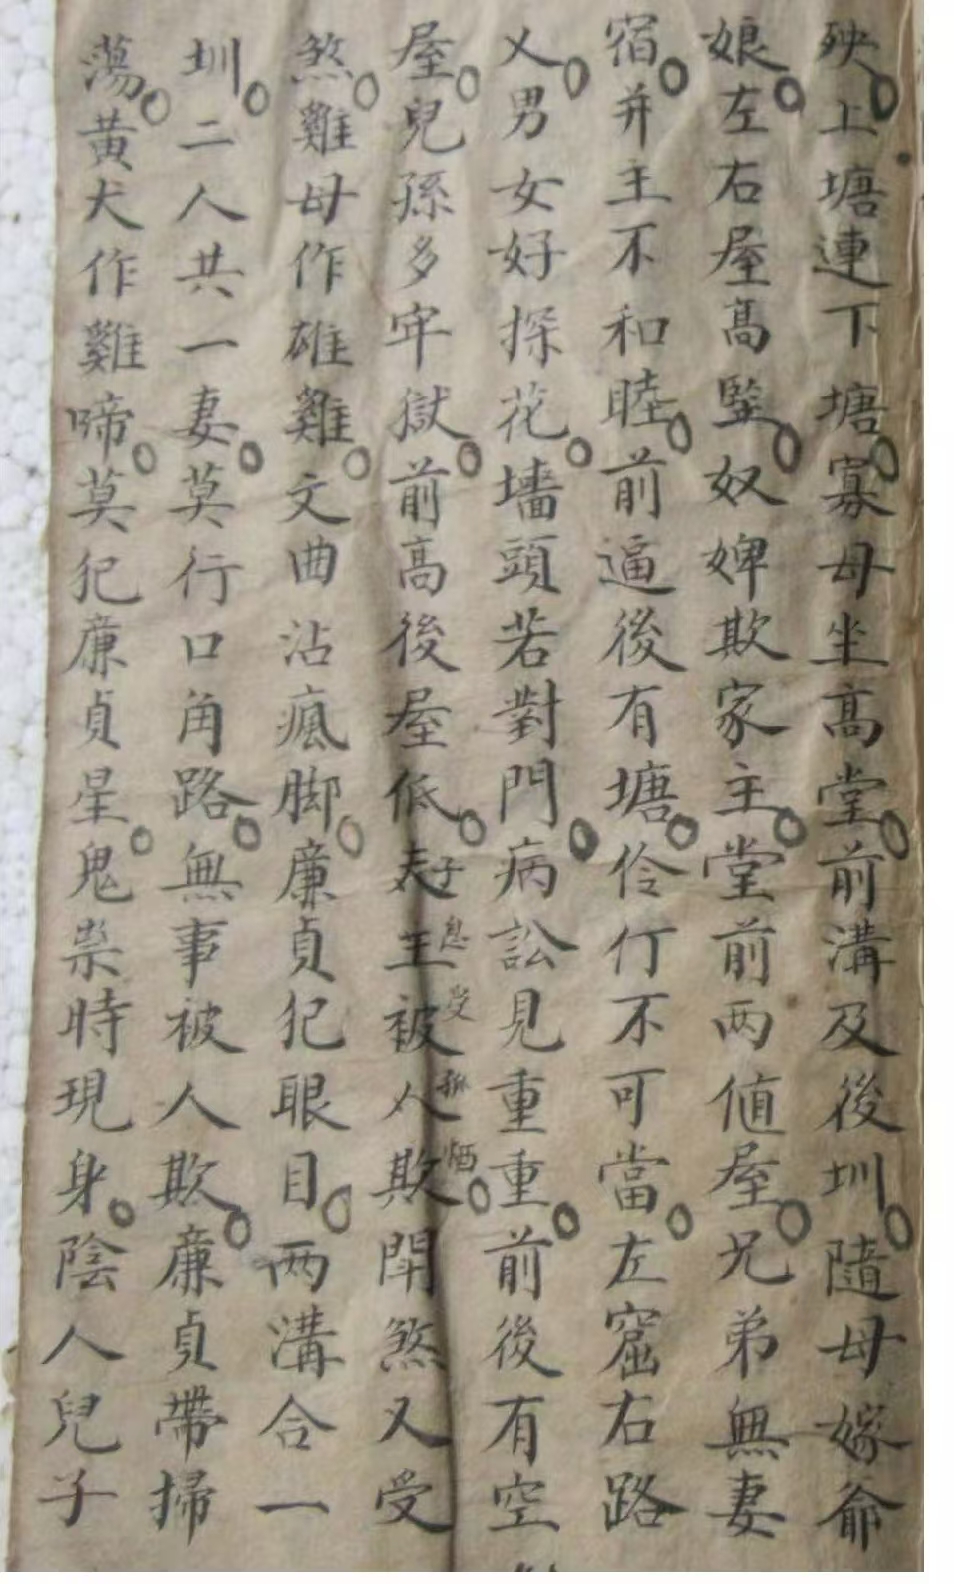 殃上塘連下塘寡母坐高堂前溝及後圳隨母嫁爺
娘左右屋高堅奴婢欺家主堂前两值屋兄弟無妻
宿并主不和睦前逼後有塘伶仃不可當左窟右路
乂男女好探花墻頭若對門病訟見重重前後有空
屋兒孫多牢獄前高後屋低夫主被人欺開煞又受
子息受孤恓
煞雞母作雄雞文曲沾瘋脚廉貞犯眼目两溝合一
圳二人共一妻莫行口角路無事被人欺廉貞帶掃
蕩黃犬作雞啼莫犯廉貞星鬼祟時現身陰人兒子